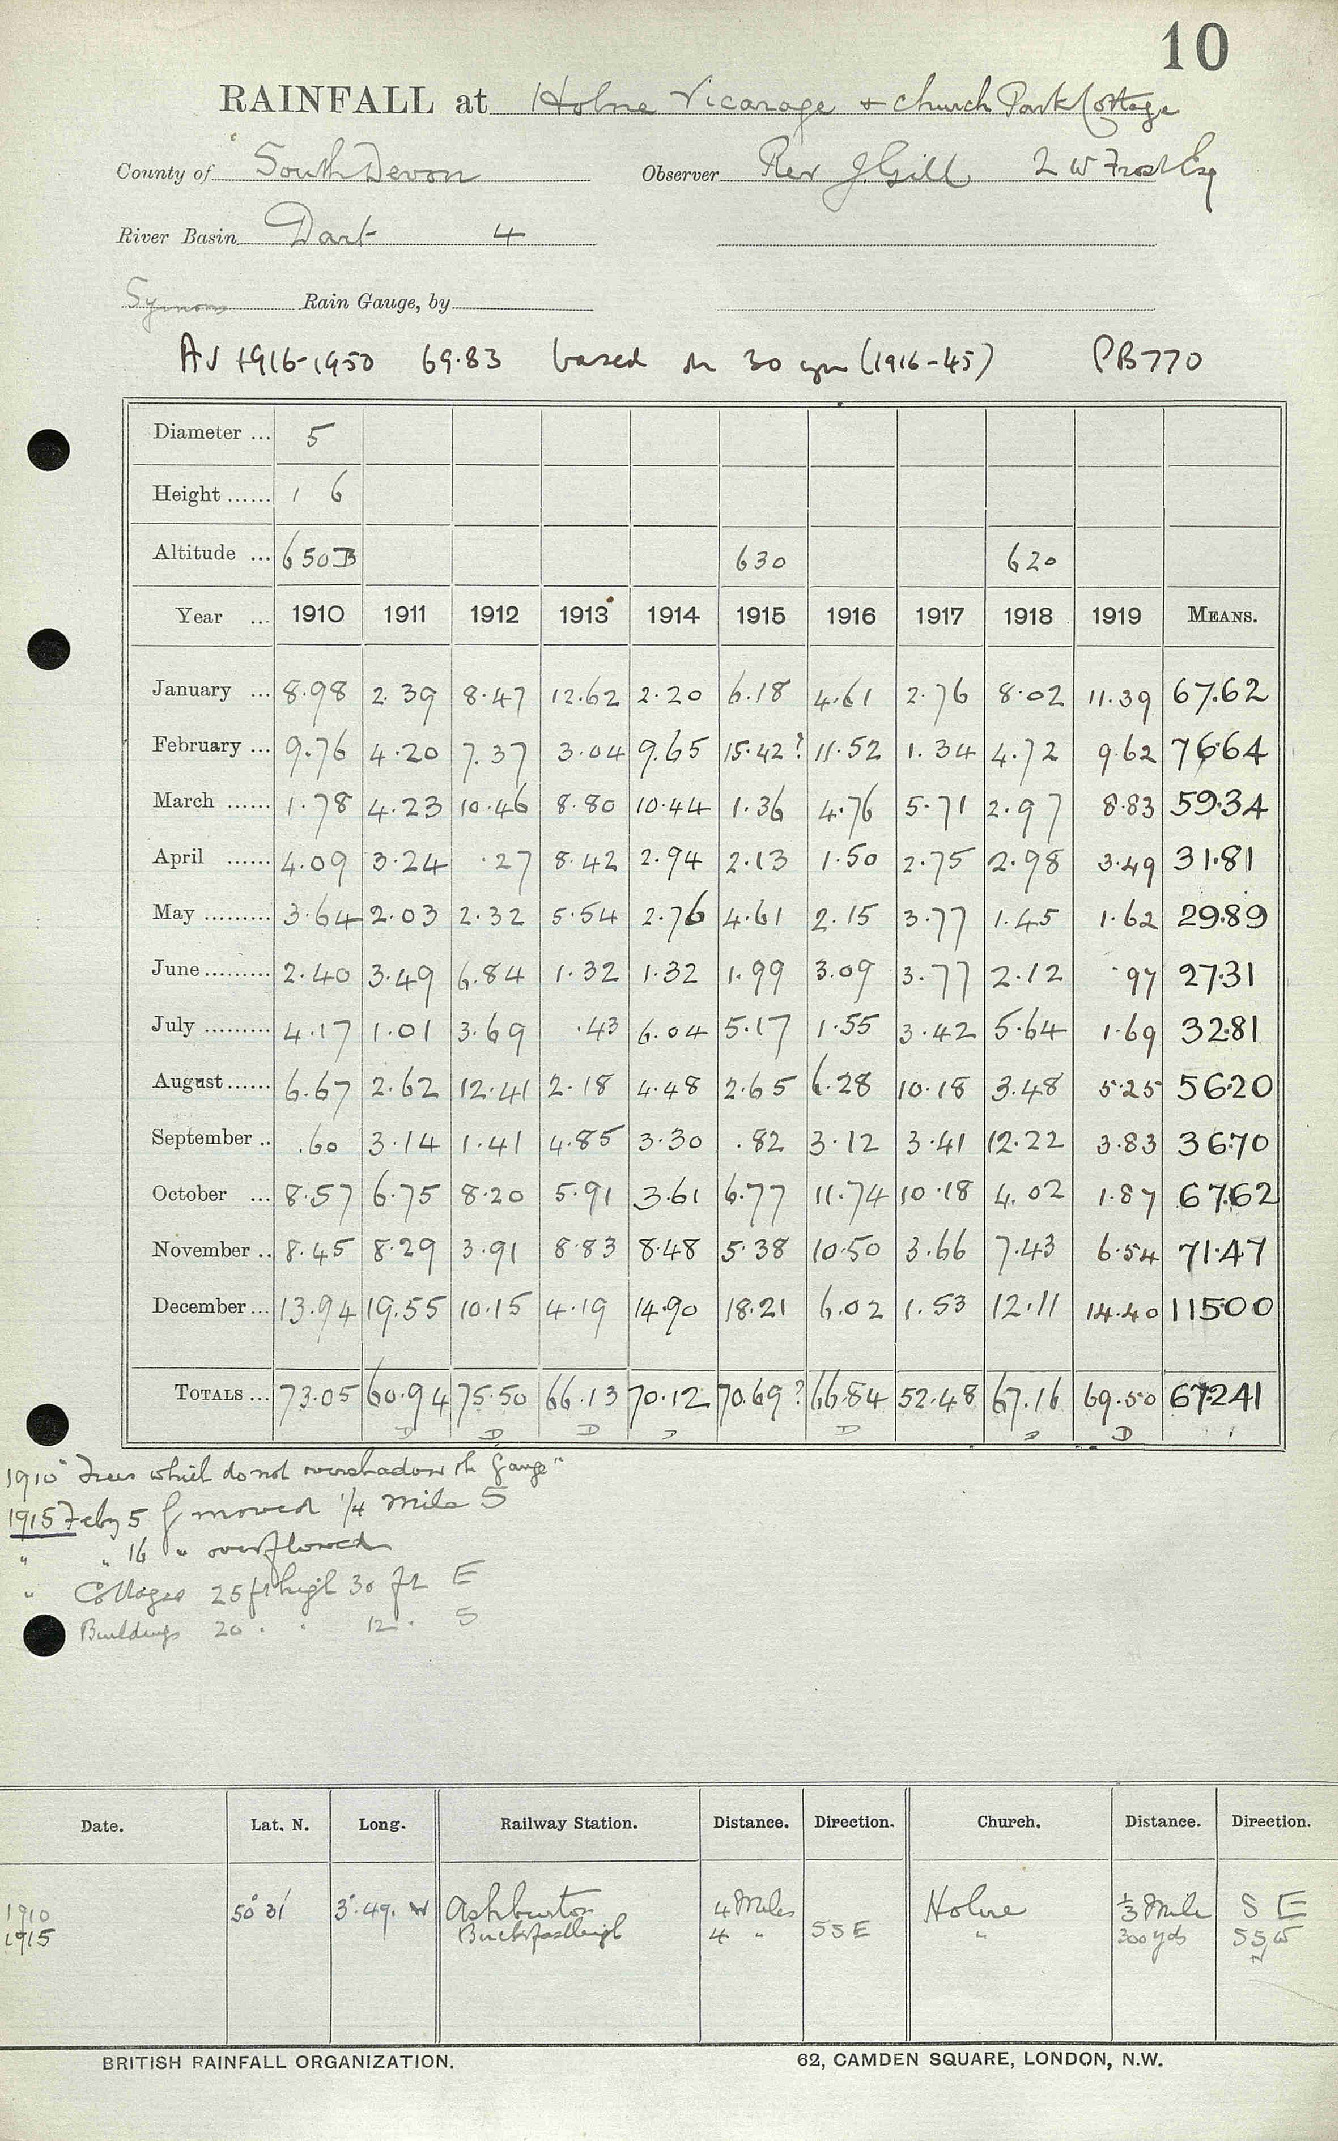 10
RAINFALL at Holne Vicarage + Church Park Cottage
County of South Devon Observer Rev J Gill L W Frost Esq
River Basin Dart 4
Symons Rain Gauge, by
Av 1916-1950 69.83 based on 30 yrs (1916-45) PB770
Diameter ... 5
Height ...... 1 6
Altitude ... 650B 630 620
Year ... 1910 1911 1912 1913 1914 1915 1916 1917 1918 1919 MEANS.
January ... 8.98 2.39 8.47 12.62 2.20 6.18 4.61 2.76 8.02 11.39 67.62
February ... 9.76 4.20 7.37 3.04 9.65 15.42? 11.52 1.34 4.72 9.62 76.64
March ...... 1.78 4.23 10.46 8.80 10.44 1.36 4.76 5.71 2.97 8.83 59.34
April ...... 4.09 3.24 .27 8.42 2.94 2.13 1.50 2.75 2.98 3.49 31.81
May ......... 3.64 2.03 2.32 5.54 2.76 4.61 2.15 3.77 1.45 1.62 29.89
June ......... 2.40 3.49 6.84 1.32 1.32 1.99 3.09 3.77 2.12 .97 27.31
July ......... 4.17 1.01 3.69 .43 6.04 5.17 1.55 3.42 5.64 1.69 32.81
August ...... 6.67 2.62 12.41 2.18 4.48 2.65 6.28 10.18 3.48 5.25 56.20
September .. .60 3.14 1.41 4.85 3.30 .82 3.12 3.41 12.22 3.83 36.70
October ... 8.57 6.75 8.20 5.91 3.61 6.77 11.74 10.18 4.02 1.87 67.62
November .. 8.45 8.29 3.91 8.83 8.48 5.38 10.50 3.66 7.43 6.54 71.47
December ... 13.94 19.55 10.15 4.19 14.90 18.21 6.02 1.53 12.11 14.40 115.00
TOTALS ... 73.05 60.94 75.50 66.13 70.12 70.69? 66.84 52.48 67.16 69.50 672.41
D D D D D D D
1910 "Trees which do not overshadow the gauge"
1915 Feby 5 g moved 1/4 mile S
" " 16 " overflowed
" Cottages 25 ft high 30 ft E
Buildings 20 " " 12 " S
Date. Lat. N. Long. Railway Station. Distance. Direction. Church. Distance. Direction.
1910 50° 31' 3°.49. W Ashburton 4 Miles Holne 1/3 Mile S E
1915 Buckfastleigh 4 " SSE " 300 yds SSW
N
BRITISH RAINFALL ORGANIZATION. 62, CAMDEN SQUARE, LONDON, N.W.